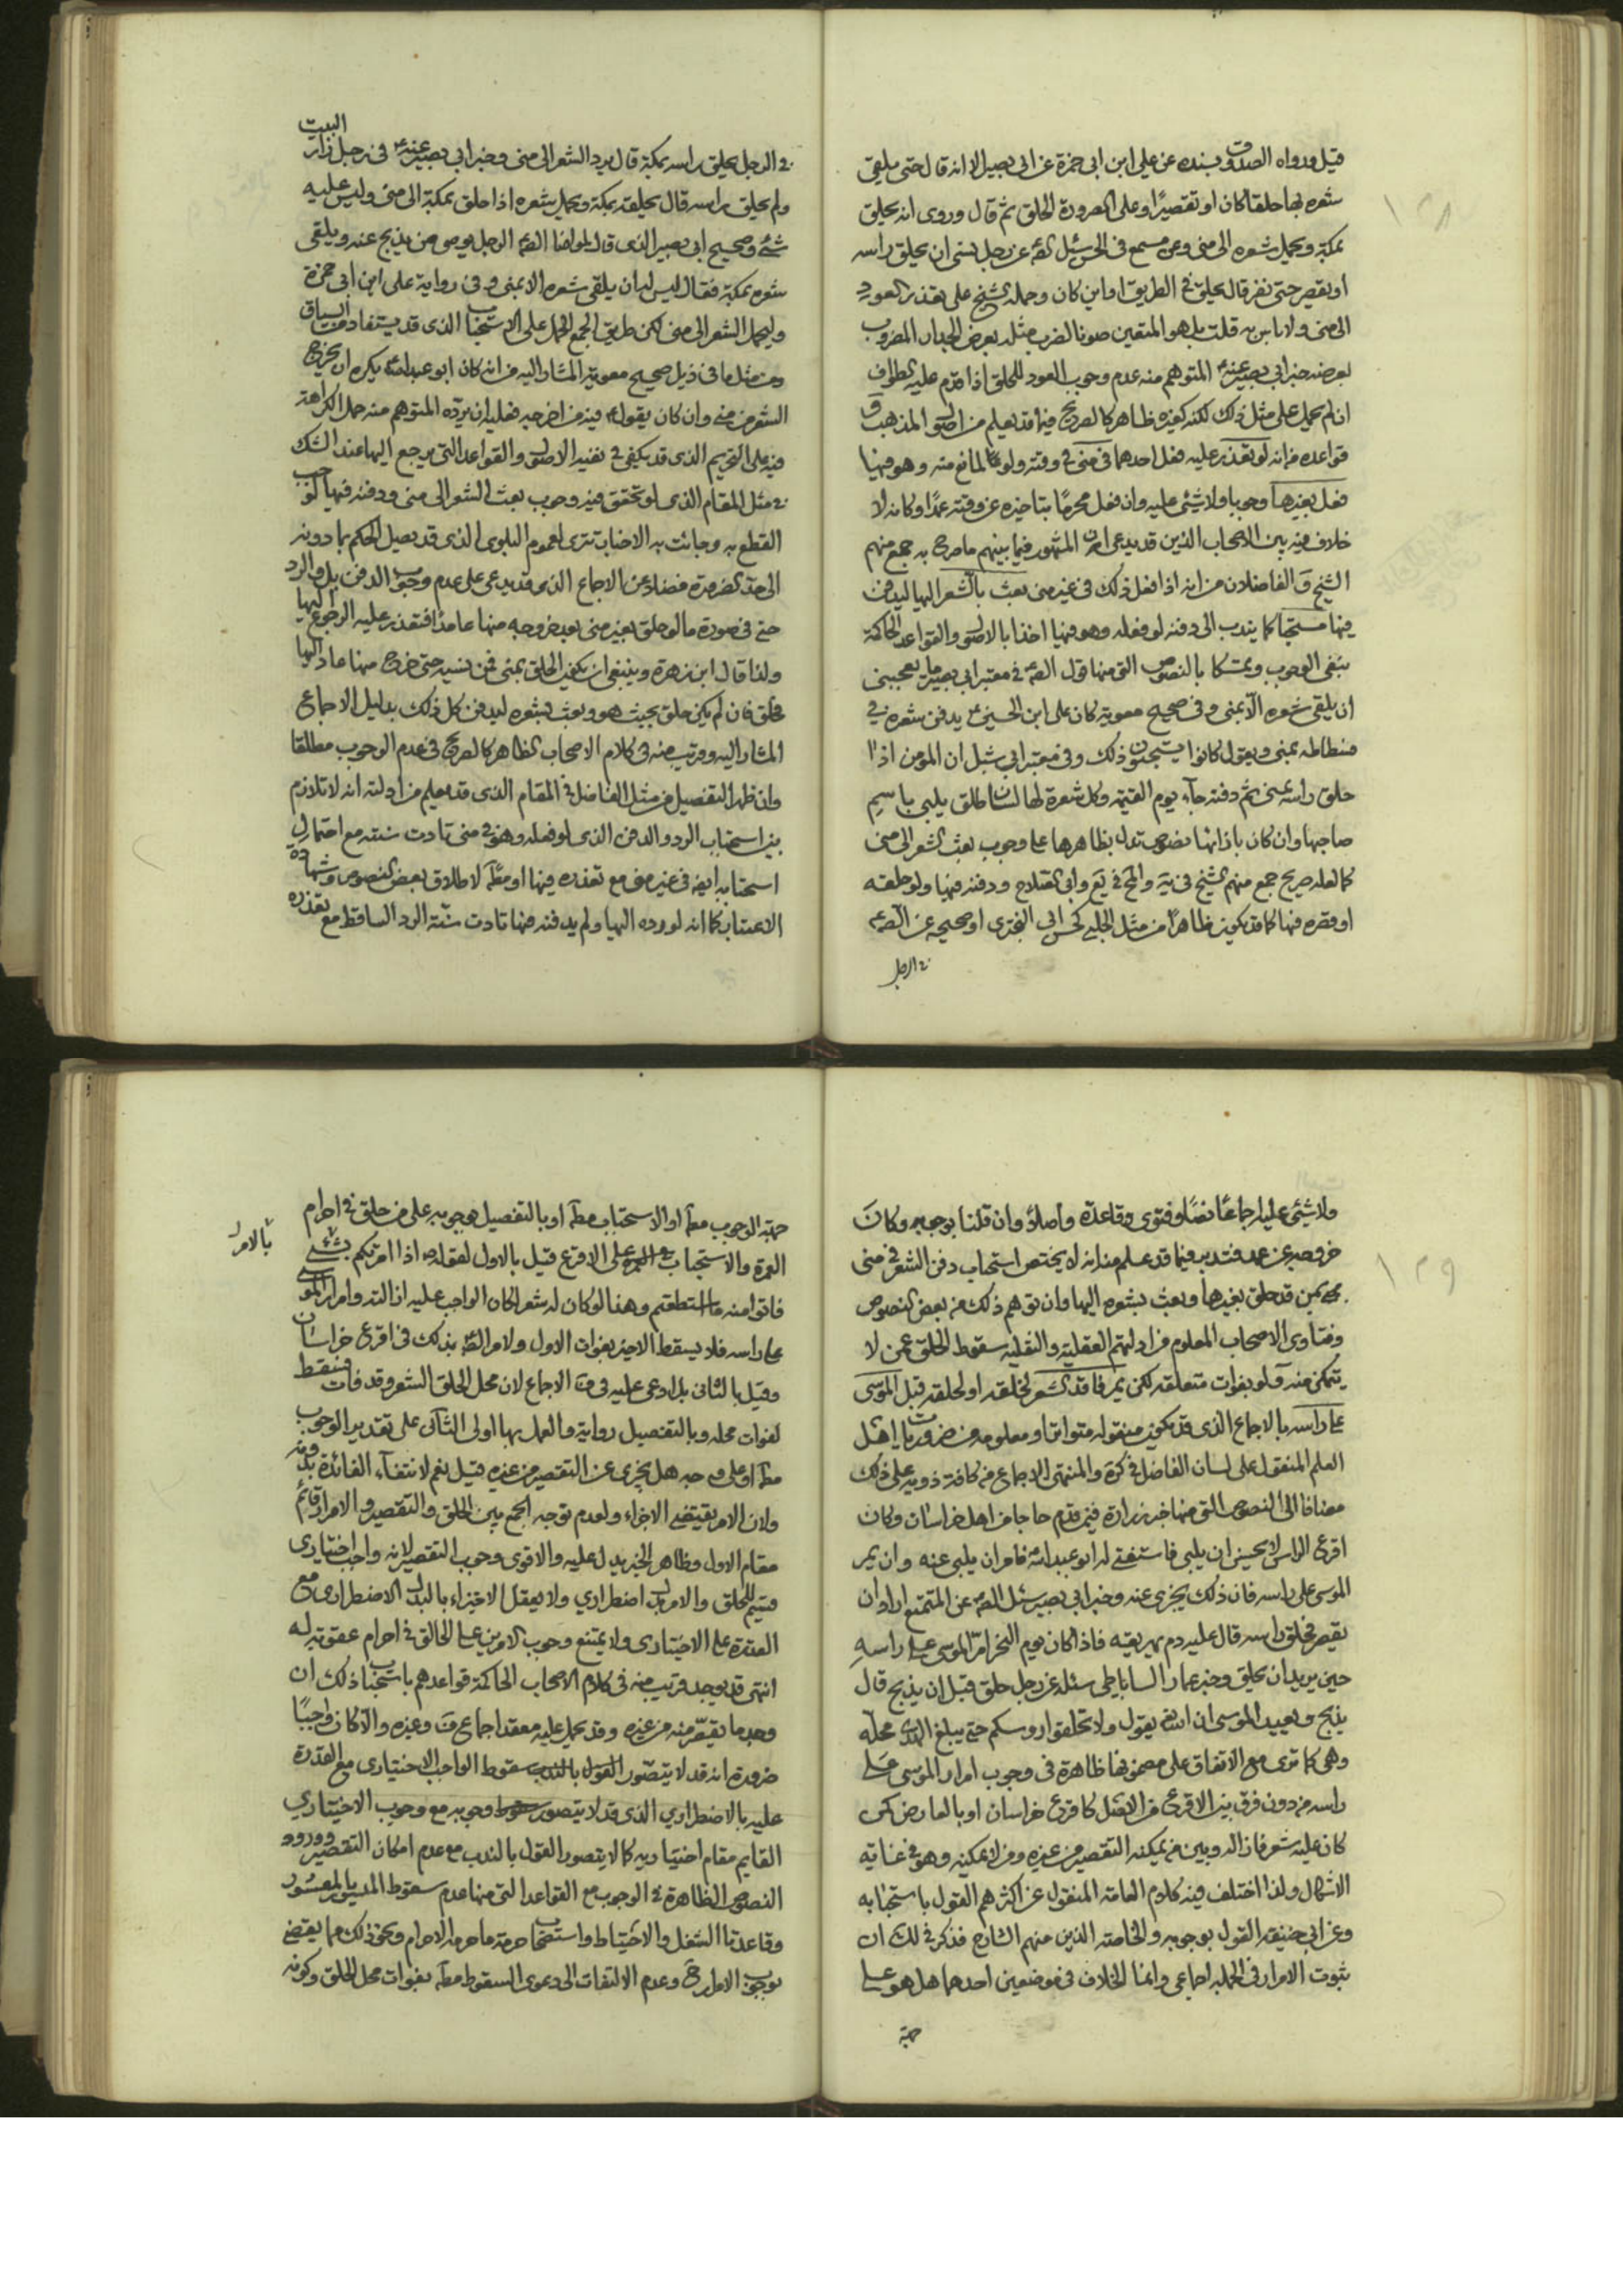 ١٣٨
قيل ورواه الصدوق بسنده عن علي ابن ابي حمزة عن ابي بصير الا انه قال حتى يلقي
شعره بها حلقا كان او تقصيرا وعلى الصرورة الحلق ثم قال وروى انه يحلق
بمكة ويحمل شعره الى منى وعن مسمع في الحسن سئل الصه عن رجل نسي ان يحلق راسه
او يقصر حتى نفر قال يحلق في الطريق او اين كان وحمله الشيخ على تعذر العود
الى منى ولا باس به قلت بل هو المتعين صونا لضرب مثله بعرض الجدار المضروب
بعرضه خبر ابي بصير عنه المتوهم منه عدم وجوب العود للحلق اذا قدم عليه الطواف
ان لم يحمل على مثل ذلك لكنه كغيره ظاهر كالصريح فيما قد يعلم من اصول المذهب و
قواعده من انه لو تعذر عليه فعل احدهما في منى في وقته ولو لمانع منه وهو فيها
فعل بغيرها وجوبا ولا شيئ عليه وان فعل محرما بتاخيره عن وقته عمدا وكانه لا
خلاف فيه بين الاصحاب الذين قد يدعى ان المشهور فيما بينهم ما صرح به جمع منهم
الشيخ والفاضلان من انه اذا فعل ذلك في غير منى بعث بالشعر اليها ليدفن
فيها مستحبا كما يندب الى دفنه لو فعله وهو فيها اخذا بالاصول والقواعد الحاكمة
بنفي الوجوب وتمسكا بالنصوص التي منها قول الصه في معتبر ابي بصير ما يعجبني
ان يلقي شعره الا بمنى وفي صحيح معوية كان علي ابن الحسين ع يدفن شعره في
فسطاطه بمنى ويقول كانوا يستحبون ذلك وفي معتبر ابي شبل ان المؤمن اذا
حلق راسه بمنى ثم دفنه جاء يوم القيمة وكل شعرة لها لسان طلق يلبي باسم
صاحبها وان كان باذائها نصوص تدل بظاهرها على وجوب بعث الشعر الى منى
كما لعله صريح جمع منهم الشيخ في ية والمح في يع وابي الصلاح ودفنه فيها ولو حلقه
او قصره فيها كما قد يكون ظاهرا من مثل الحلبي كحسن ابي البختري او صحيحه عن الصه
في الرجل
في الرجل يحلق راسه بمكة قال يرد الشعر الى منى وخبر ابي بصير عنه في رجل زار البيت
ولم يحلق راسه قال يحلقه بمكة ويحمل شعره اذا حلق بمكة الى منى وليس عليه
شئ وصحيح ابي بصير الذي قال لمولانا الصه الرجل يوصي من يذبح عنه ويلقي
شعره بمكة فقال ليس له ان يلقي شعره الا بمنى وفي رواية علي ابن ابي حمزة
وليحمل الشعر الى منى لكن طريق الجمع الحمل على الاستحباب الذي قد يستفاد من السياق
ومن مثل ما في ذيل صحيح معوية المشار اليه من انه كان ابو عبد الله يكره ان يخرج
الشعر من منى وان كان يقول فيه من اخرجه فعليه ان يرده المتوهم منه حمل الكراهة
فيه على التحريم الذي قد يكفي في نفيه الاصول والقواعد التي يرجع اليها عند الشك
في مثل المقام الذي لو تحقق فيه وجوب بعث الشعر الى منى ودفنه فيها لوجب
القطع به وجائت به الاخبار تترى لعموم البلوى الذي قد يصل الحكم بما دونه
الى حد الضرورة فضلا عن الاجماع الذي قد يدعى على عدم وجوب الدفن بل والرد
حتى في صورة ما لو حلق بغير منى بعد خروجه منها عامدا فتعذر عليه الرجوع اليها
ولذا قال ابن زهرة وينبغي ان يكون الحلق بمنى فمن نسيه حتى خرج منها عاد اليها
فحلق فان لم يكن حلق بحيث هو وبعث بشعره ليدفن كل ذلك بدليل الاجماع
المشار اليه وقريب منه في كلام الاصحاب الظاهر كالصريح في عدم الوجوب مطلقا
وان ظهر التفصيل من مثل الفاضل في المقام الذي قد يعلم من ادلته انه لا تلازم
بين استحباب الرد والدفن الذي لو فعله وهو في منى تادت سنته مع احتمال
استحبابه ايضا في غير منى مع تعذره فيها او مطلقا لاطلاق بعض النصوص وشهادة
الاعتبار كما انه لو رده اليها ولم يدفنه فيها تادت سنة الرد الساقط مع تعذره
١٣٩
ولا شيئ عليه اجماعا نصا وفتوى وقاعدة واصلا وان قلنا بوجوبه وكان
خروجه عن عمد فتدبر فيما قد علم منا انه لا يختص استحباب دفن الشعر في منى
بمن قد حلق بغيرها وبعث بشعره اليها وان توهم ذلك من بعض النصوص
وفتاوى الاصحاب المعلوم من ادلتهم العقلية والنقلية سقوط الحلق عمن لا
يتمكن منه ولو بفوات متعلقه لكن يمر فاقد الشعر لخلقه او لحلقه قبل الموسى
على راسه بالاجماع الذي قد يكون منقوله متواترا ومعلومه من ضروريات اهل
العلم المنقول على لسان الفاضل في كرة والمنتهى الاجماع من كافة ذويه على ذلك
مضافا الى النصوص التي منها خبر زرارة فيمن قدم حاجا من اهل خراسان وكان
اقرع الراس لا يحسن ان يلبي فاستفتي له ابو عبد الله فامر ان يلبى عنه وان يمر
الموسى على راسه فان ذلك يجزي عنه وخبر ابي بصير سئل الصه عن المتمتع اراد ان
يقصر فحلق راسه قال عليه دم يهريقه فاذا كان يوم النحر امر الموسى على راسه
حين يريد ان يحلق وخبر عمار الساباطي سئله عن رجل حلق قبل ان يذبح قال
يذبح ويعيد الموسى ان الله يقول ولا تحلقوا روسكم حتى يبلغ الهدي محله
وهي كما ترى مع الاتفاق على مضمونها ظاهرة في وجوب امرار الموسى على
راسه من دون فرق بين الاقرع من الاصل كاقرع خراسان او بالعارض كمن
كان عليه شعر فازاله وبين من يمكنه التقصير من غيره ومن لا يمكنه وهو في غاية
الاشكال ولذا اختلف فيه كلام العامة المنقول عن اكثرهم القول باستحبابه
وعن ابي حنيفة القول بوجوبه والخاصة الذين منهم الشارح فذكر في لك ان
ثبوت الامرار في الجملة اجماعي وانما الخلاف في موضعين احدهما هل هو على
جهة
جهة الوجوب مطلقا او الاستحباب مطلقا او بالتفصيل بوجوبه على من حلق في احرام
العمرة والاستحباب على الاقرع قيل بالاول لقوله ص اذا امرتكم بشئ
بالامر
فاتوا منه ما استطعتم وهذا لو كان له شعر لكان الواجب عليه ازالته وامرار الموسى
على راسه فلا يسقط الاخير بفوات الاول ولامر الصه بذلك في اقرع خراسان
وقيل بالثاني بل ادعى عليه في ف الاجماع لان محل الحلق الشعر وقد فات فيسقط
لفوات محله وبالتفصيل رواية والعمل بها اولى الثاني على تقدير الوجوب
مطلقا او على وجه هل يجزي عن التقصير من غيره قيل نعم لانتفاء الفائدة بدونه
ولان الامر يقتضي الاجزاء ولعدم توجه الجمع بين الحلق والتقصير والامرار قائم
مقام الاول وظاهر الخبر يدل عليه والاقوى وجوب التقصير لانه واجب اختياري
قسيم للحلق والامرار بدل اضطراري ولا يعقل الاجتزاء بالبدل الاضطراري مع
القدرة على الاختياري ولا يمتنع وجوب الامرين على الحالق في احرام عقوبة له
انتهى قد يوجد قريب منه في كلام الاصحاب الحاكمة قواعدهم باستحباب ذلك ان
وجد ما يقصر منه من غيره وقد يحمل عليه معقد اجماع ف وغيره والا كان واجبا
ضرورة انه قد لا يتصور القول بالندب سقوط الواجب الاختياري مع القدرة
عليه بالاضطراري الذي قد لا يتصور وجوبه مع وجوب الاختياري
القايم مقام اختياريه كما لا يتصور القول بالندب مع عدم امكان التقصير وورود
النصوص الظاهرة في الوجوب مع القواعد التي منها عدم سقوط الميسور بالمعسور
وقاعدتا الشغل والاحتياط واستصحاب حرمة ما حرمه الاحرام ونحو ذلك مما يقضي
بوجوب الامرار ح وعدم الالتفات الى دعوى السقوط مطلقا بفوات محل الحلق وكونه